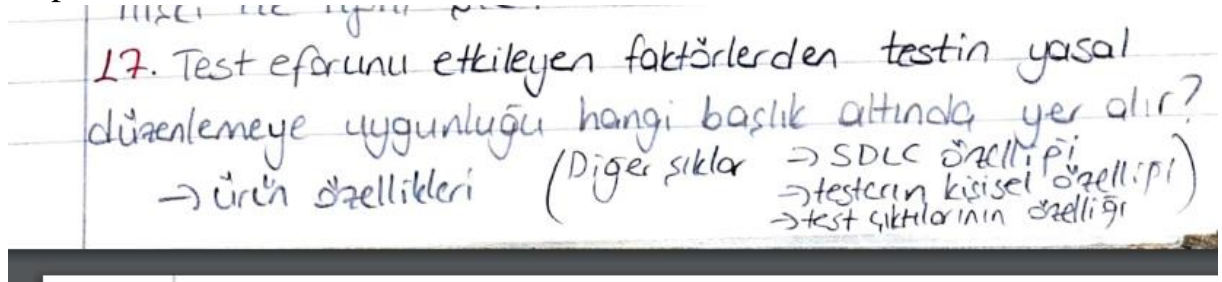 17. Test eforunu etkileyen faktörlerden testin yasal
düzenlemeye uygunluğu hangi başlık altında yer alır?
→ ürün özellikleri (Diğer şıklar → SDLC özelliği
→ testerın kişisel özelliği)
→ test çıktılarının özelliği